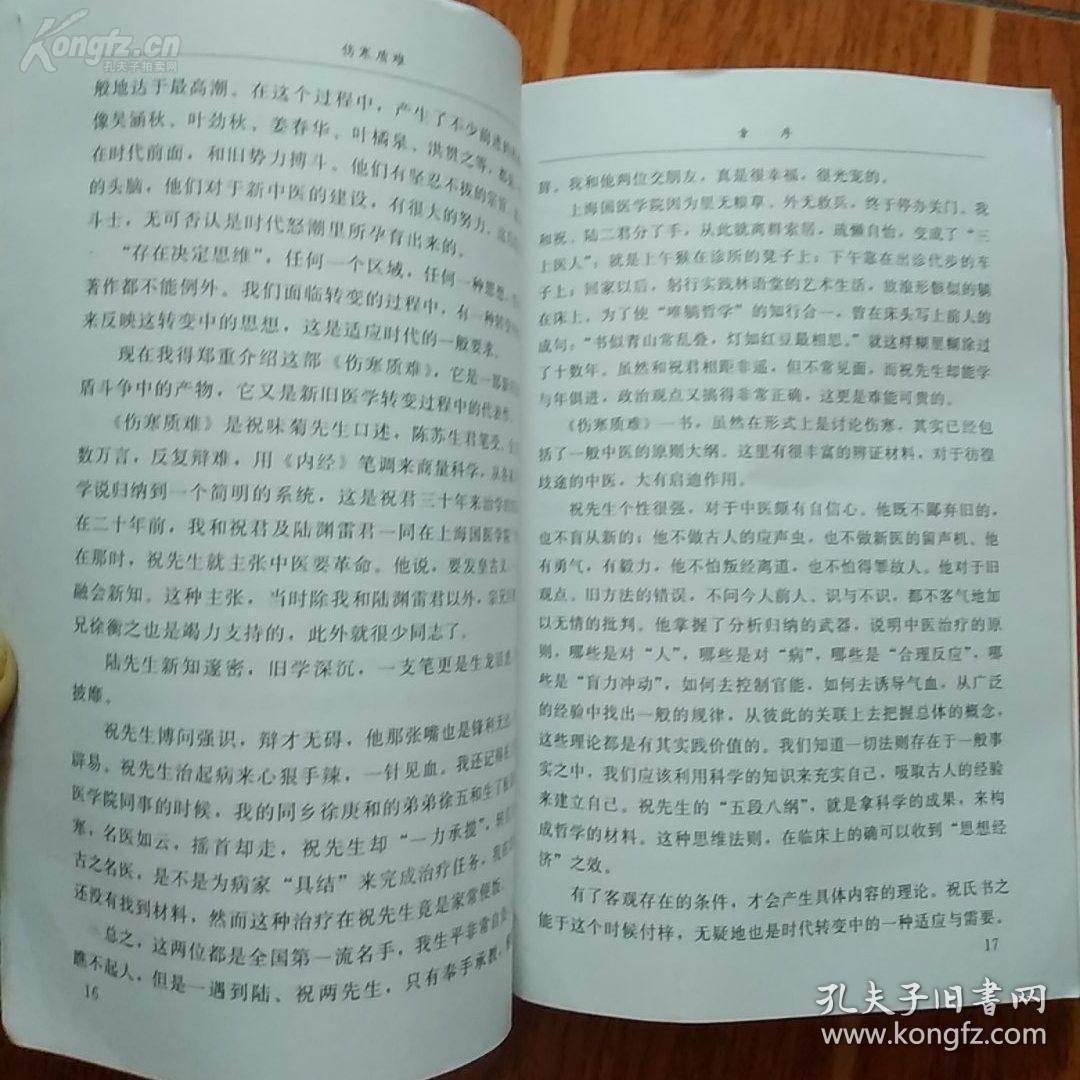 Kongfz.cn
孔夫子拍卖网
伤寒质难
般地达于最高潮。在这个过程中，产生了不少前进的
像吴涵秋、叶劲秋、姜春华、叶橘泉、洪贯之等，都
在时代前面，和旧势力搏斗。他们有坚忍不拔的
的头脑，他们对于新中医的建设，有很大的努力。
斗士，无可否认是时代怒潮里所孕育出来的。
“存在决定思维”，任何一个区域，任何一种思想，
著作都不能例外。我们面临转变的过程中，有一种
来反映这转变中的思想，这是适应时代的一般要求。
现在我得郑重介绍这部《伤寒质难》，它是一部新
盾斗争中的产物，它又是新旧医学转变过程中的代表
《伤寒质难》是祝味菊先生口述，陈苏生君笔受，
数万言，反复辩难，用《内经》笔调来商量科学，从
学说归纳到一个简明的系统，这是祝君三十年来治学的
在二十年前，我和祝君及陆渊雷君一同在上海国医学院
在那时，祝先生就主张中医要革命。他说，要发皇古义
融会新知。这种主张，当时除我和陆渊雷君以外，
兄徐衡之也是竭力支持的，此外就很少同志了。
陆先生新知邃密，旧学深沉，一支笔更是生龙活虎
披靡。
祝先生博问强识，辩才无碍，他那张嘴也是锋利无比
辟易。祝先生治起病来心狠手辣，一针见血。我还记得在
医学院同事的时候，我的同乡徐庚和的弟弟徐五和生了
寒，名医如云，摇首却走，祝先生却“一力承揽”，
古之名医，是不是为病家“具结”来完成治疗任务，我
还没有找到材料，然而这种治疗在祝先生竟是家常便饭。
总之，这两位都是全国第一流名手，我生平非常自
瞧不起人，但是一遇到陆、祝两先生，只有奉手承教，
16
章序
辞。我和他两位交朋友，真是很幸福，很光宠的。
上海国医学院因为里无粮草、外无救兵，终于停办关门。我
和祝、陆二君分了手，从此就离群索居，疏懒自怡，变成了“三
上医人”：就是上午猴在诊所的凳子上；下午靠在出诊代步的车
子上；回家以后，躬行实践林语堂的艺术生活，放浪形骸似的躺
在床上。为了使“唪躺哲学”的知行合一，曾在床头写上前人的
成句：“书似青山常乱叠，灯如红豆最相思。”就这样糊里糊涂过
了十数年。虽然和祝君相距非遥，但不常见面，而祝先生却能学
与年俱进，政治观点又搞得非常正确，这更是难能可贵的。
《伤寒质难》一书，虽然在形式上是讨论伤寒，其实已经包
括了一般中医的原则大纲。这里有很丰富的辨证材料，对于彷徨
歧途的中医，大有启迪作用。
祝先生个性很强，对于中医颇有自信心。他既不鄙弃旧的，
也不盲从新的；他不做古人的应声虫，也不做新医的留声机。他
有勇气，有毅力，他不怕叛经离道，也不怕得罪故人。他对于旧
观点、旧方法的错误，不问今人前人、识与不识，都不客气地加
以无情的批判。他掌握了分析归纳的武器，说明中医治疗的原
则，哪些是对“人”，哪些是对“病”，哪些是“合理反应”，哪
些是“盲力冲动”，如何去控制官能，如何去诱导气血，从广泛
的经验中找出一般的规律，从彼此的关联上去把握总体的概念，
这些理论都是有其实践价值的。我们知道一切法则存在于一般事
实之中，我们应该利用科学的知识来充实自己，吸取古人的经验
来建立自己。祝先生的“五段八纲”，就是拿科学的成果，来构
成哲学的材料。这种思维法则，在临床上的确可以收到“思想经
济”之效。
有了客观存在的条件，才会产生具体内容的理论。祝氏书之
能于这个时候付梓，无疑地也是时代转变中的一种适应与需要。
17
孔夫子旧书网
www.kongfz.com